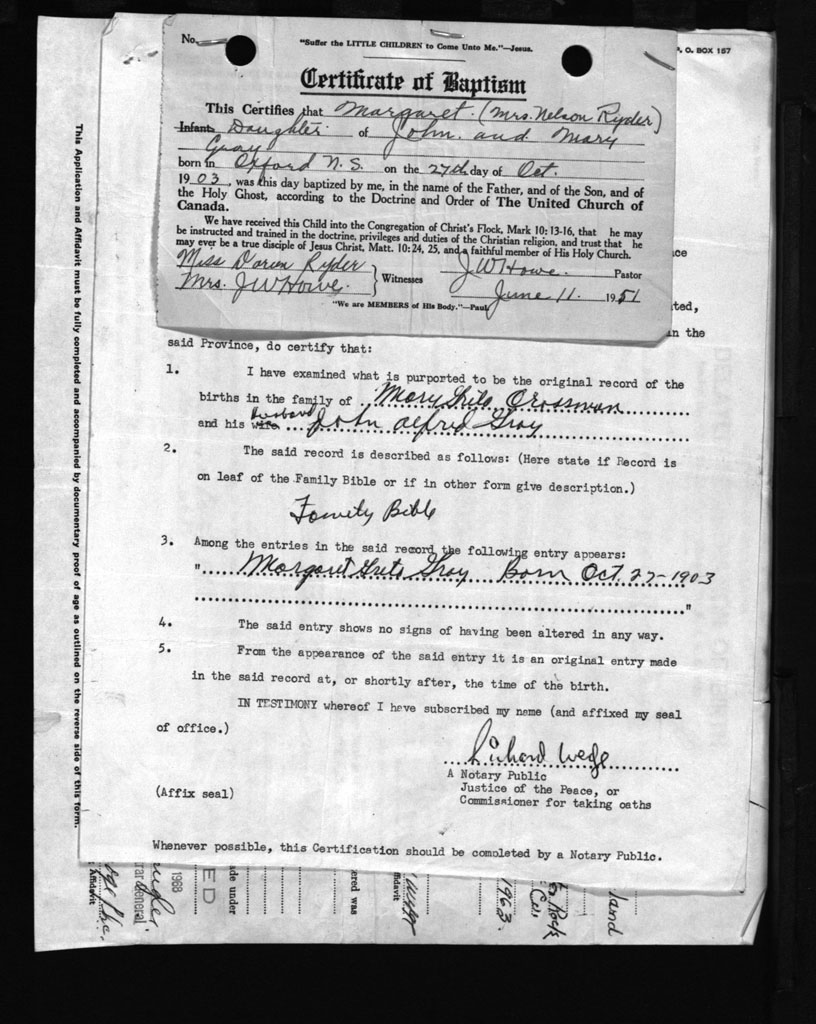 No.
"Suffer the LITTLE CHILDREN to Come Unto Me."—Jesus.
P. O. BOX 157
Certificate of Baptism
This Certifies that Margaret (Mrs. Nelson Ryder)
Infant Daughter of John and Mary
Gray
born in Oxford N.S. on the 27th day of Oct.
1903, was this day baptized by me, in the name of the Father, and of the Son, and of
the Holy Ghost, according to the Doctrine and Order of The United Church of
Canada.
We have received this Child into the Congregation of Christ's Flock, Mark 10: 13-16, that he may
be instructed and trained in the doctrine, privileges and duties of the Christian religion, and trust that he
may ever be a true disciple of Jesus Christ, Matt. 10: 24, 25, and a faithful member of His Holy Church.
Miss Doreen Ryder
Mrs. J W Howe.
Witnesses
J W Howe. Pastor
June 11. 1951
"We are MEMBERS of His Body."—Paul
in the
said Province, do certify that:
1. I have examined what is purported to be the original record of the
births in the family of Mary Crossman
husband
and his wife John Alfred Gray
2. The said record is described as follows: (Here state if Record is
on leaf of the Family Bible or if in other form give description.)
Family Bible
3. Among the entries in the said record the following entry appears:
"..... Margaret Greta Gray Born Oct. 27-1903
"
4. The said entry shows no signs of having been altered in any way.
5. From the appearance of the said entry it is an original entry made
in the said record at, or shortly after, the time of the birth.
IN TESTIMONY whereof I have subscribed my name (and affixed my seal
of office.)
Richard Wege
A Notary Public
Justice of the Peace, or
Commissioner for taking oaths
(Affix seal)
Whenever possible, this Certification should be completed by a Notary Public.
This Application and Affidavit must be fully completed and accompanied by documentary proof of age as outlined on the reverse side of this form.
Affidavit
1968
rar General
ED
ade under
ered was
ffidavit
1963
Rock
land